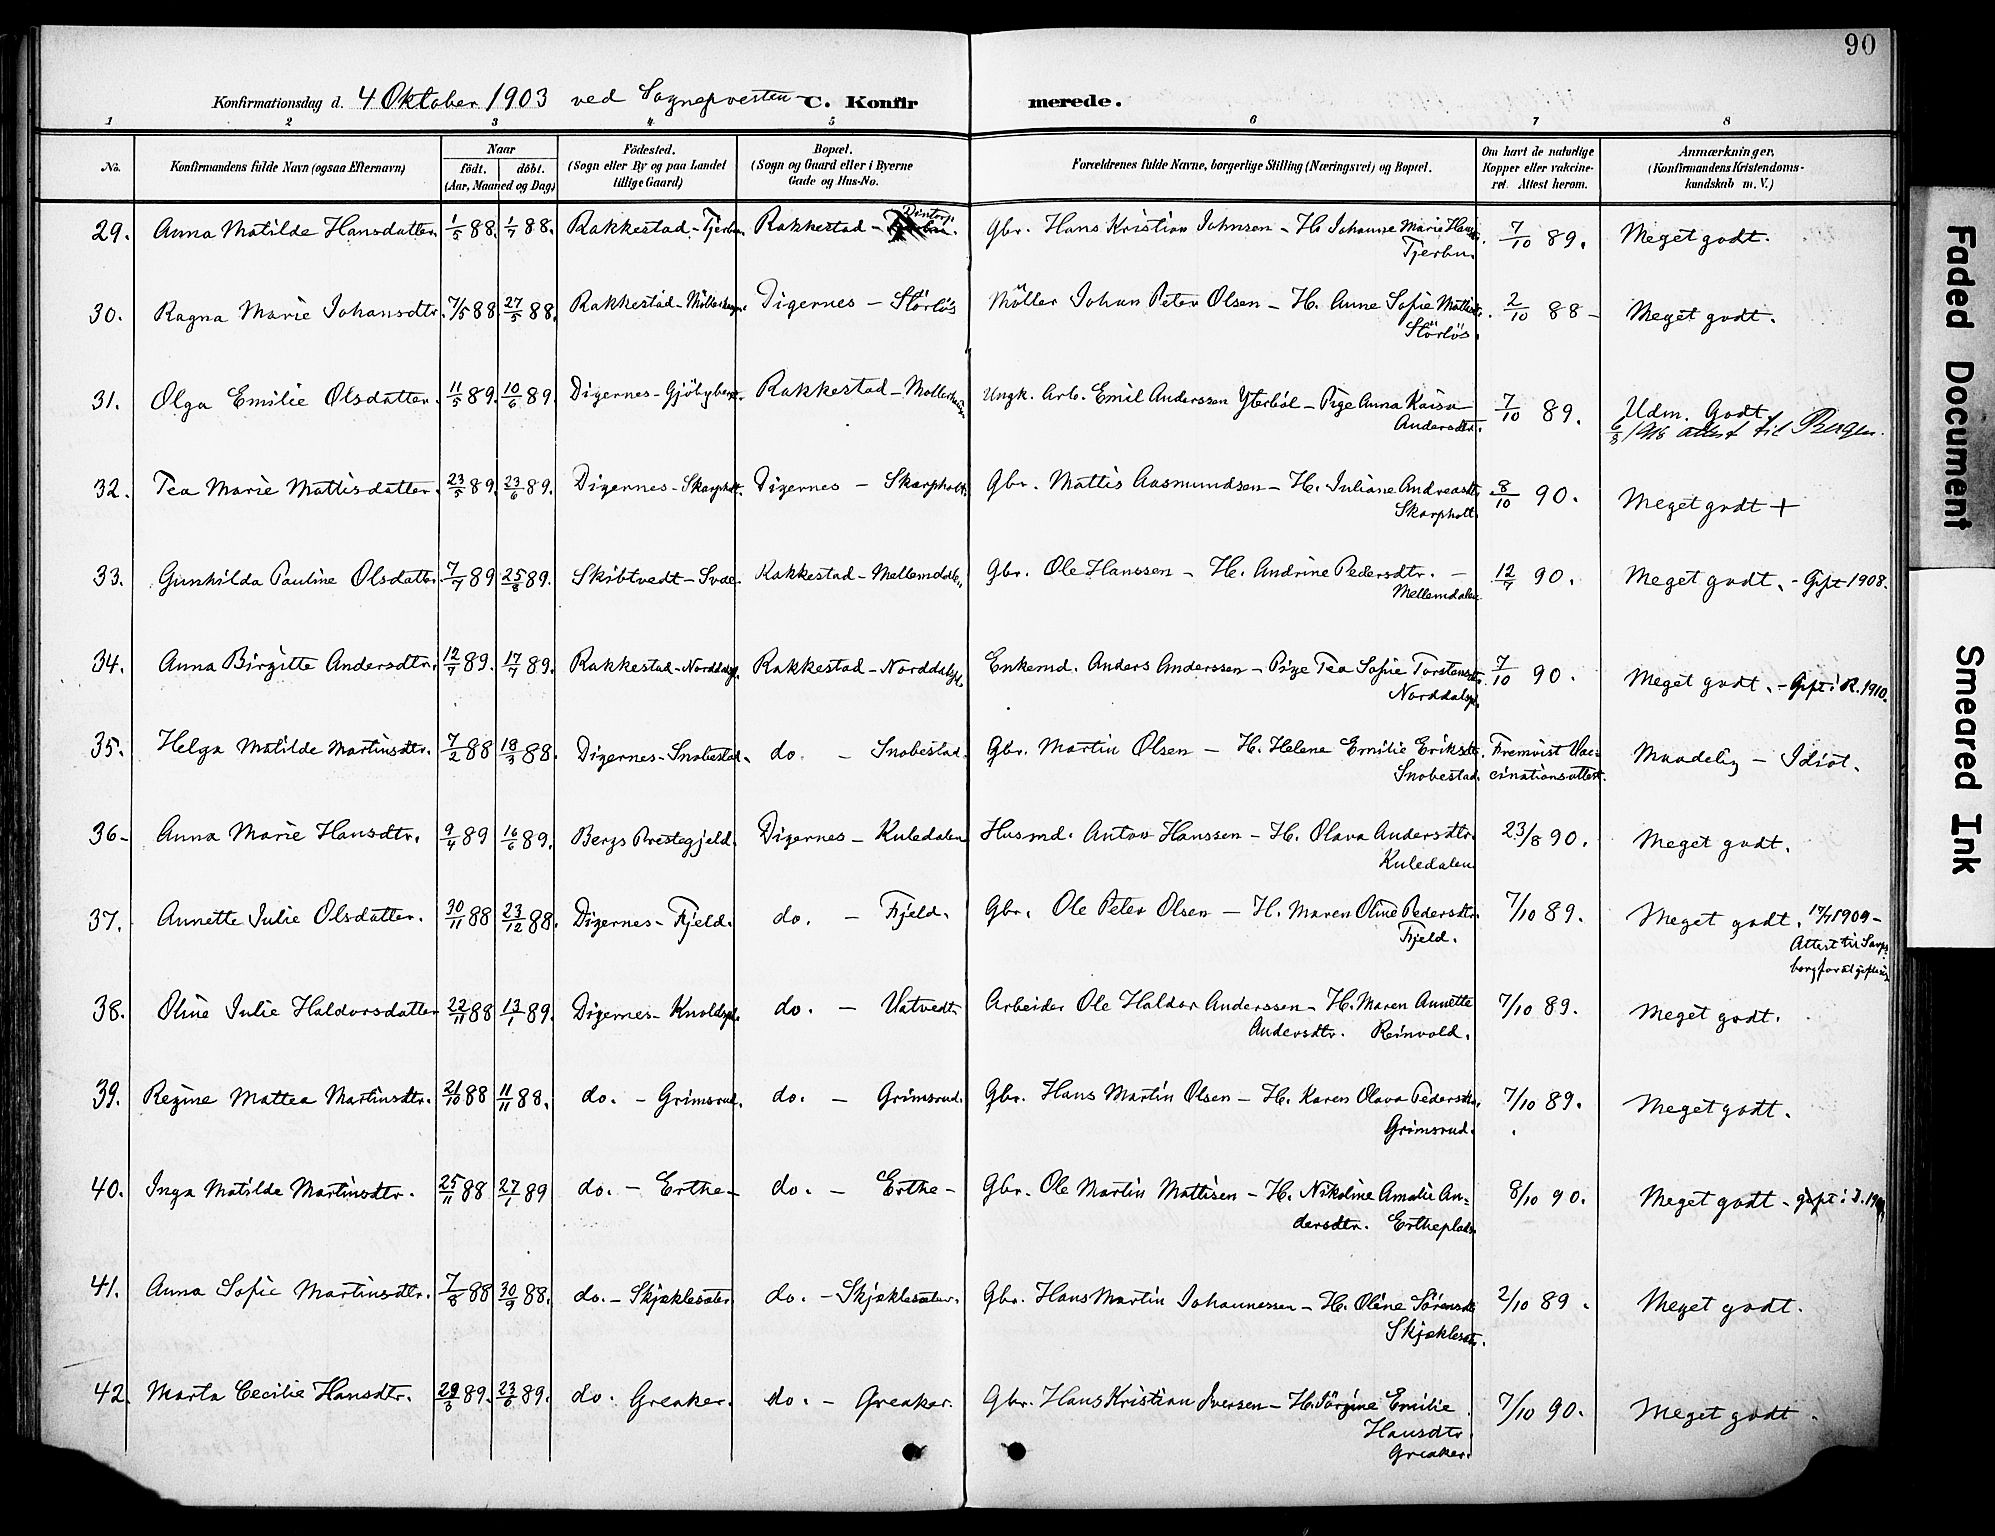 90
Konfirmationsdag d. 4 Oktober 1903 ved Sognepresten C. Konfirmerede.
1 2 3 4 5 6 7 8
No. Konfirmandens fulde Navn (ogsaa Efternavn) Naar født. døbt. (Aar, Maaned og Dag) Fødested. (Sogn eller By og paa Landet tillige Gaard) Bopæl. (Sogn og Gaard eller i Byerne Gade og Hus-No. Forældrenes fulde Navne, borgerlige Stilling (Næringsvei) og Bopæl. Om havt de naturlige Kopper eller vakcineret. Attest herom. Anmærkninger, (Konfirmandens Kristendomskundskab m. V.)
29. Anna Matilde Hansdatter. 1/5 88. 1/7 88. Rakkestad - Tjerbu. Rakkestad - Gbr. Hans Kristian Johnsen - H. Johanne Marie Hansd. 7/10 89. Meget godt.
Tjerbu.
30. Ragna Marie Johansdtr. 7/5 88. 27/5 88. Rakkestad - Digernes - Störlös Möller Johan Peter Olsen - H. Anne Sofie 2/10 88 - Meget godt.
Störlös.
31. Olga Emilie Olsdatter. 11/5 89. 10/6 89. Digernes - Rakkestad - Ungk. Arb. Emil Anderssen Yterböl - Pige Anna Kaisa 7/10 89. Udm. Godt.
Andersdtr. attest til Bergen.
32. Tea Marie Mattisdatter. 23/5 89. 23/6 89. Digernes - Skarpholt. Digernes - Skarpholt. Gbr. Mattis Aasmundsen - H. Juliane Andreasdt. 8/10 90. Meget godt +
Skarpholt.
33. Gunhilda Pauline Olsdatter 7/7 89 25/8 89. Skibtvedt - Rakkestad - Mellemdalen. Gbr. Ole Hanssen - H. Andrine Pedersdtr. - 12/7 90. Meget godt. - Gift 1908.
Mellemdalen
34. Anna Birgitte Andersdtr. 12/7 89. 17/7 89. Rakkestad - Norddalspl. Rakkestad - Norddalspl. Enkemd. Anders Anderssen - Pige Tea Sofie Torstensdtr. 7/10 90. Meget godt. - Gift i R. 1910.
Norddalspl.
35. Helga Matilde Martinsdtr. 7/2 88 18/3 88. Digernes - Snobestad. do. - Snobestad. Gbr. Martin Olsen - H. Helene Emilie Eriksdt. Fremvist Vac- Maadelig - Idiot.
Snobestad. cinationsattest.
36 - Anna Marie Hansdtr. 9/4 89 16/6 89. Bergs Prestegjeld. Digernes - Kuledalen Husmd. Anton Hanssen - H. Olava Andersdtr. 23/8 90. Meget godt.
Kuledalen
37. Annette Julie Olsdatter. 30/11 88 23/12 88. Digernes - Fjeld. do. - Fjeld. Gbr. Ole Peter Olsen - H. Maren Oline Pedersdtr. 7/10 89. Meget godt. 1909 -
Fjeld. Attest til Sarps-
borg for at giftes
38. Oline Julie Haldorsdatter 22/11 88 13/1 89. Digernes - Knoldspl. do. - Vatvedt Arbeider Ole Haldor Anderssen - H. Maren Annette 7/10 89. Meget godt.
Andersdtr. Reinvold.
39. Regine Mattea Martinsdtr. 21/10 88 11/11 88. do. - Grimsrud. do. - Grimsrud. Gbr. Hans Martin Olsen - H. Karen Olava Pedersdtr. 7/10 89. Meget godt.
Grimsrud.
40. Inga Matilde Martinsdtr. 25/11 88 27/1 89 do. - Erthe - do. - Erthe - Gbr. Ole Martin Mattisen - H. Nikoline Amalie An- 8/10 90. Meget godt - gift i D.
dersdtr. Ertheplads.
41. Anna Sofie Martinsdtr. 7/8 88 30/9 88. do. - Skjæklesæter. do. - Skjæklesæter. Gbr. Hans Martin Johannessen - H. Oline Sörensdt. 2/10 89. Meget godt.
Skjæklesæt.
42. Marta Cecilie Hansdtr. 89. 89. do. Greaker. do. - Greaker. Gbr. Hans Kristian Iversen - H. Jörgine Emilie 7/10 90. Meget godt.
Hansdtr.
Greaker.
Faded Document
Smeared Ink